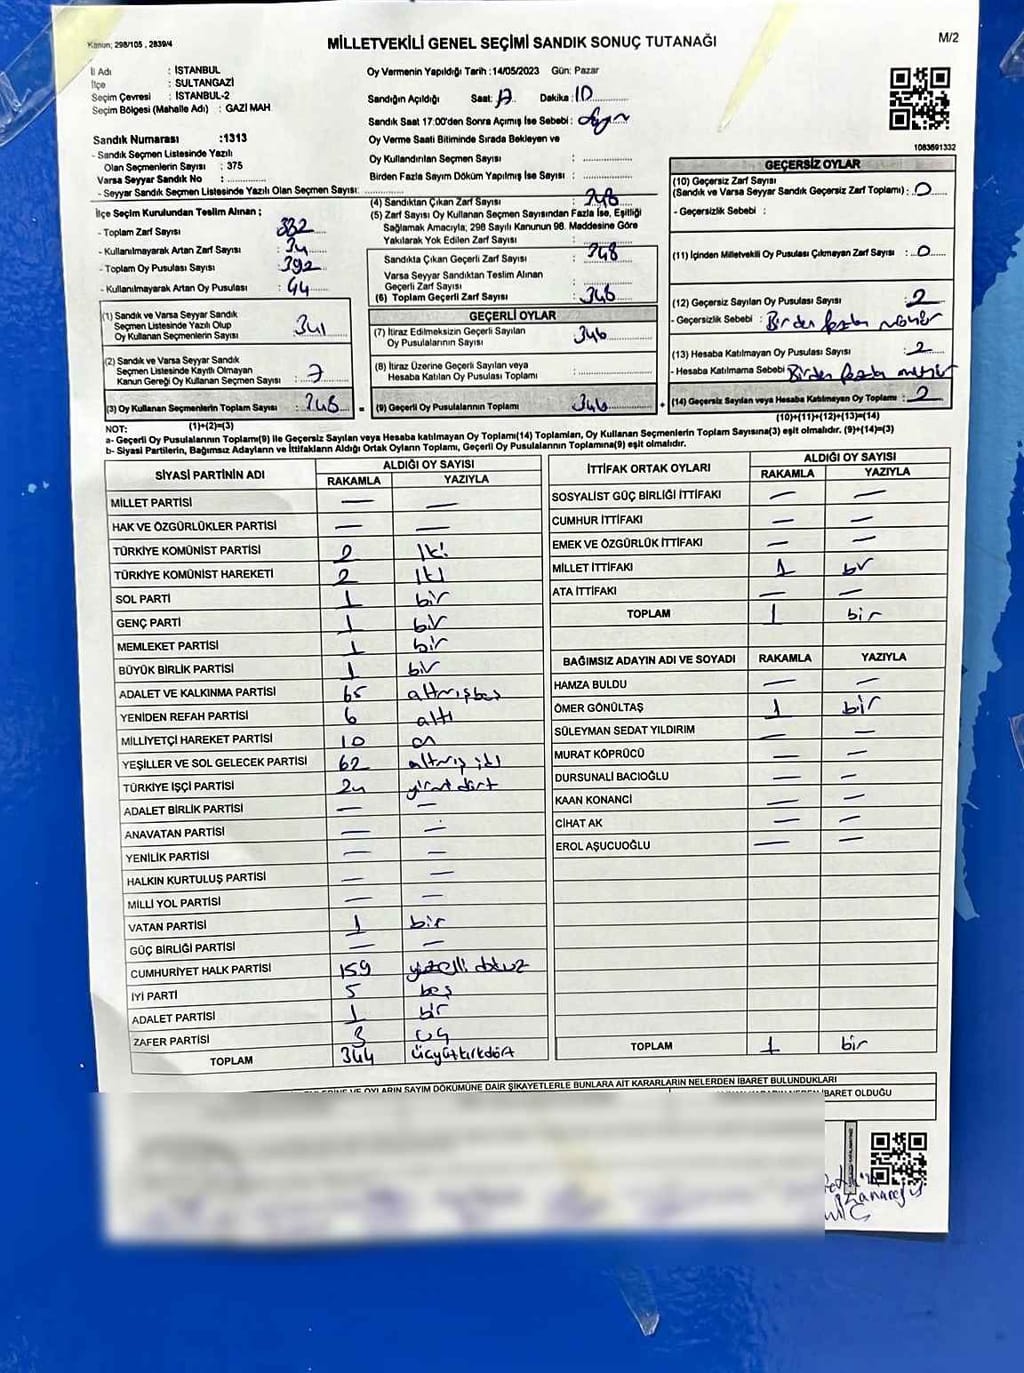 Kanun; 298/105 , 2839/4
MİLLETVEKİLİ GENEL SEÇİMİ SANDIK SONUÇ TUTANAĞI
M/2
İl Adı : İSTANBUL
İlçe : SULTANGAZİ
Seçim Çevresi : İSTANBUL-2
Seçim Bölgesi (Mahalle Adı) : GAZİ MAH
Sandık Numarası :1313
- Sandık Seçmen Listesinde Yazılı
Olan Seçmenlerin Sayısı : 375
Varsa Seyyar Sandık No :
- Seyyar Sandık Seçmen Listesinde Yazılı Olan Seçmen Sayısı:
Oy Vermenin Yapıldığı Tarih :14/05/2023 Gün: Pazar
Sandığın Açıldığı Saat: 17 Dakika: 10
Sandık Saat 17:00'den Sonra Açılmış İse Sebebi :
Oy Verme Saati Bitiminde Sırada Bekleyen ve
Oy Kullandırılan Seçmen Sayısı :
Birden Fazla Sayım Döküm Yapılmış İse Sayısı :
1083691332
İlçe Seçim Kurulundan Teslim Alınan ;
- Toplam Zarf Sayısı : 382
- Kullanılmayarak Artan Zarf Sayısı : 34
- Toplam Oy Pusulası Sayısı : 392
- Kullanılmayarak Artan Oy Pusulası : 44
(1) Sandık ve Varsa Seyyar Sandık
Seçmen Listesinde Yazılı Olup
Oy Kullanan Seçmenlerin Sayısı : 341
(2) Sandık ve Varsa Seyyar Sandık
Seçmen Listesinde Kayıtlı Olmayan
Kanun Gereği Oy Kullanan Seçmen Sayısı : 7
(3) Oy Kullanan Seçmenlerin Toplam Sayısı : 348 =
(1)+(2)=(3)
(4) Sandıktan Çıkan Zarf Sayısı : 348
(5) Zarf Sayısı Oy Kullanan Seçmen Sayısından Fazla İse, Eşitliği
Sağlamak Amacıyla, 298 Sayılı Kanunun 98. Maddesine Göre
Yakılarak Yok Edilen Zarf Sayısı :
Sandıkta Çıkan Geçerli Zarf Sayısı : 348
Varsa Seyyar Sandıktan Teslim Alınan
Geçerli Zarf Sayısı :
(6) Toplam Geçerli Zarf Sayısı : 346
GEÇERLİ OYLAR
(7) İtiraz Edilmeksizin Geçerli Sayılan
Oy Pusulalarının Sayısı : 346
(8) İtiraz Üzerine Geçerli Sayılan veya
Hesaba Katılan Oy Pusulası Toplamı :
(9) Geçerli Oy Pusulalarının Toplamı 346 +
GEÇERSİZ OYLAR
(10) Geçersiz Zarf Sayısı
(Sandık ve Varsa Seyyar Sandık Geçersiz Zarf Toplamı) : 0
- Geçersizlik Sebebi :
(11) İçinden Milletvekili Oy Pusulası Çıkmayan Zarf Sayısı : 0
(12) Geçersiz Sayılan Oy Pusulası Sayısı : 2
- Geçersizlik Sebebi : Birden fazla mühür
(13) Hesaba Katılmayan Oy Pusulası Sayısı : 2
- Hesaba Katılmama Sebebi Birden fazla mühür
(14) Geçersiz Sayılan veya Hesaba Katılmayan Oy Toplamı : 2
(10)+(11)+(12)+(13)=(14)
NOT:
a- Geçerli Oy Pusulalarının Toplamı(9) ile Geçersiz Sayılan veya Hesaba katılmayan Oy Toplamı(14) Toplamları, Oy Kullanan Seçmenlerin Toplam Sayısına(3) eşit olmalıdır. (9)+(14)=(3)
b- Siyasi Partilerin, Bağımsız Adayların ve İttifakların Aldığı Ortak Oyların Toplamı, Geçerli Oy Pusulalarının Toplamına(9) eşit olmalıdır.
SİYASİ PARTİNİN ADI
ALDIĞI OY SAYISI
RAKAMLA YAZIYLA
MİLLET PARTİSİ — —
HAK VE ÖZGÜRLÜKLER PARTİSİ — —
TÜRKİYE KOMÜNİST PARTİSİ 2 iki
TÜRKİYE KOMÜNİST HAREKETİ 2 iki
SOL PARTİ 1 bir
GENÇ PARTİ 1 bir
MEMLEKET PARTİSİ 1 bir
BÜYÜK BİRLİK PARTİSİ 1 bir
ADALET VE KALKINMA PARTİSİ 65 altmışbeş
YENİDEN REFAH PARTİSİ 6 altı
MİLLİYETÇİ HAREKET PARTİSİ 10 on
YEŞİLLER VE SOL GELECEK PARTİSİ 62 altmış iki
TÜRKİYE İŞÇİ PARTİSİ 24 yirmi dört
ADALET BİRLİK PARTİSİ — —
ANAVATAN PARTİSİ — —
YENİLİK PARTİSİ — —
HALKIN KURTULUŞ PARTİSİ — —
MİLLİ YOL PARTİSİ — —
VATAN PARTİSİ 1 bir
GÜÇ BİRLİĞİ PARTİSİ — —
CUMHURİYET HALK PARTİSİ 159 yüzelli dokuz
İYİ PARTİ 5 beş
ADALET PARTİSİ 1 bir
ZAFER PARTİSİ 3 üç
TOPLAM 344 üçyüzkırkdört
İTTİFAK ORTAK OYLARI
ALDIĞI OY SAYISI
RAKAMLA YAZIYLA
SOSYALİST GÜÇ BİRLİĞİ İTTİFAKI — —
CUMHUR İTTİFAKI — —
EMEK VE ÖZGÜRLÜK İTTİFAKI — —
MİLLET İTTİFAKI 1 bir
ATA İTTİFAKI — —
TOPLAM 1 bir
BAĞIMSIZ ADAYIN ADI VE SOYADI RAKAMLA YAZIYLA
HAMZA BULDU — —
ÖMER GÖNÜLTAŞ 1 bir
SÜLEYMAN SEDAT YILDIRIM — —
MURAT KÖPRÜCÜ — —
DURSUNALİ BACIOĞLU — —
KAAN KONANCİ — —
CİHAT AK — —
EROL AŞUCUOĞLU — —
TOPLAM 1 bir
OYLARIN SAYIM DÖKÜMÜNE DAİR ŞİKAYETLERLE BUNLARA AİT KARARLARIN NELERDEN İBARET BULUNDUKLARI
İBARET OLDUĞU